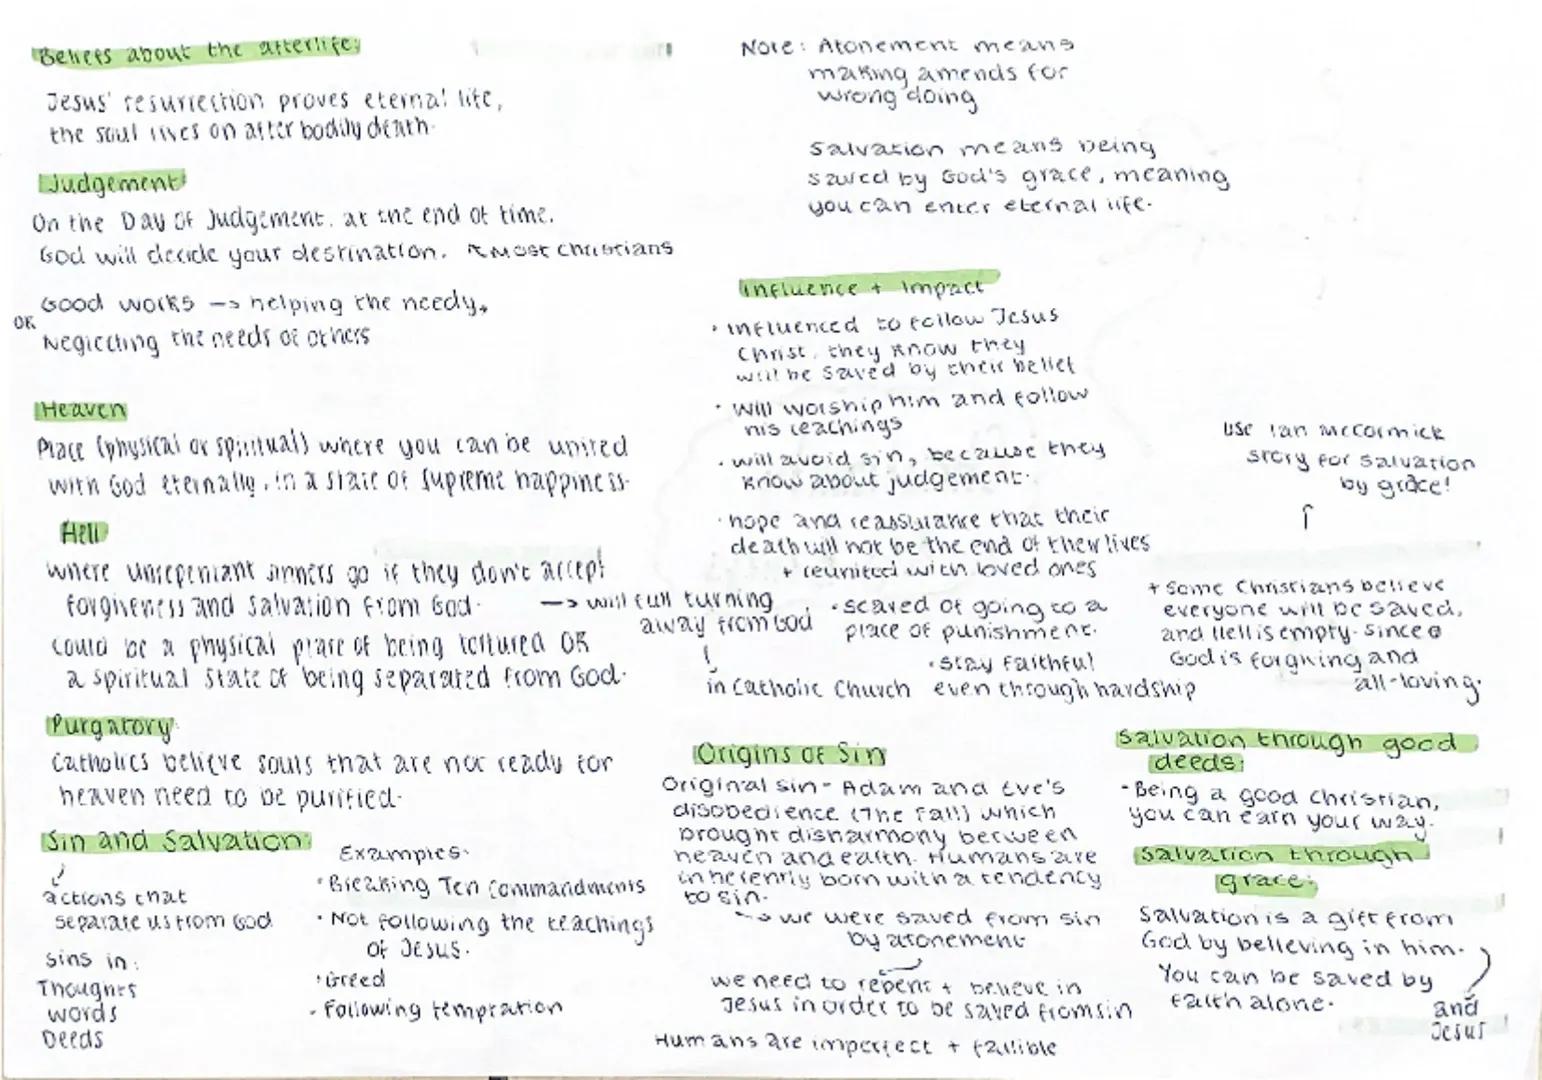 Beliefs about the afterlife:
Jesus' resurrection proves eternal life,
the soul lives on after bodily death.
Judgement
On the Day of Judgement, at the end of time,
God will decide your destination. ↖ Most Christians
Good works -> helping the needy,
OR
Neglecting the needs of others
Heaven
Place (physical or spiritual) where you can be united
with God eternally, in a state of supreme happiness.
Hell
Where unrepentant sinners go if they don't accept
forgiveness and salvation from God. -> will full turning
away from God
↓
in Catholic Church
Could be a physical place of being tortured OR
a spiritual state of being separated from God.
Purgatory
Catholics believe souls that are not ready for
heaven need to be purified.
Sin and Salvation:
↓
actions that
separate us from God
Sins in:
Thoughts
words
Deeds
Examples:
• Breaking Ten Commandments
• Not following the teachings
of Jesus.
• Greed
• Following temptation
Note: Atonement means
making amends for
wrong doing
Salvation means being
saved by God's grace, meaning
you can enter eternal life.
Influence + Impact
• influenced to follow Jesus
Christ, they know they
will be saved by their belief
• will worship him and follow
his teachings
• will avoid sin, because they
know about judgement.
• hope and reassurance that their
death will not be the end of their lives
+ reunited with loved ones
• scared of going to a
place of punishment.
• stay faithful
even through hardship
Use Ian McCormick
story for salvation
by grace!
↑
+ Some Christians believe
everyone will be saved,
and Hell is empty. Since
God is forgiving and
all-loving.
Origins of Sin
Original sin - Adam and Eve's
disobedience (The Fall) which
brought disharmony between
heaven and earth. Humans are
inherently born with a tendency
to sin.
-> we were saved from sin
by atonement
we need to repent + believe in
Jesus in order to be saved from sin
Humans are imperfect + fallible
Salvation through good
deeds:
• Being a good Christian,
you can earn your way.
Salvation through
grace:
Salvation is a gift from
God by believing in him.
You can be saved by
faith alone.
and
Jesus